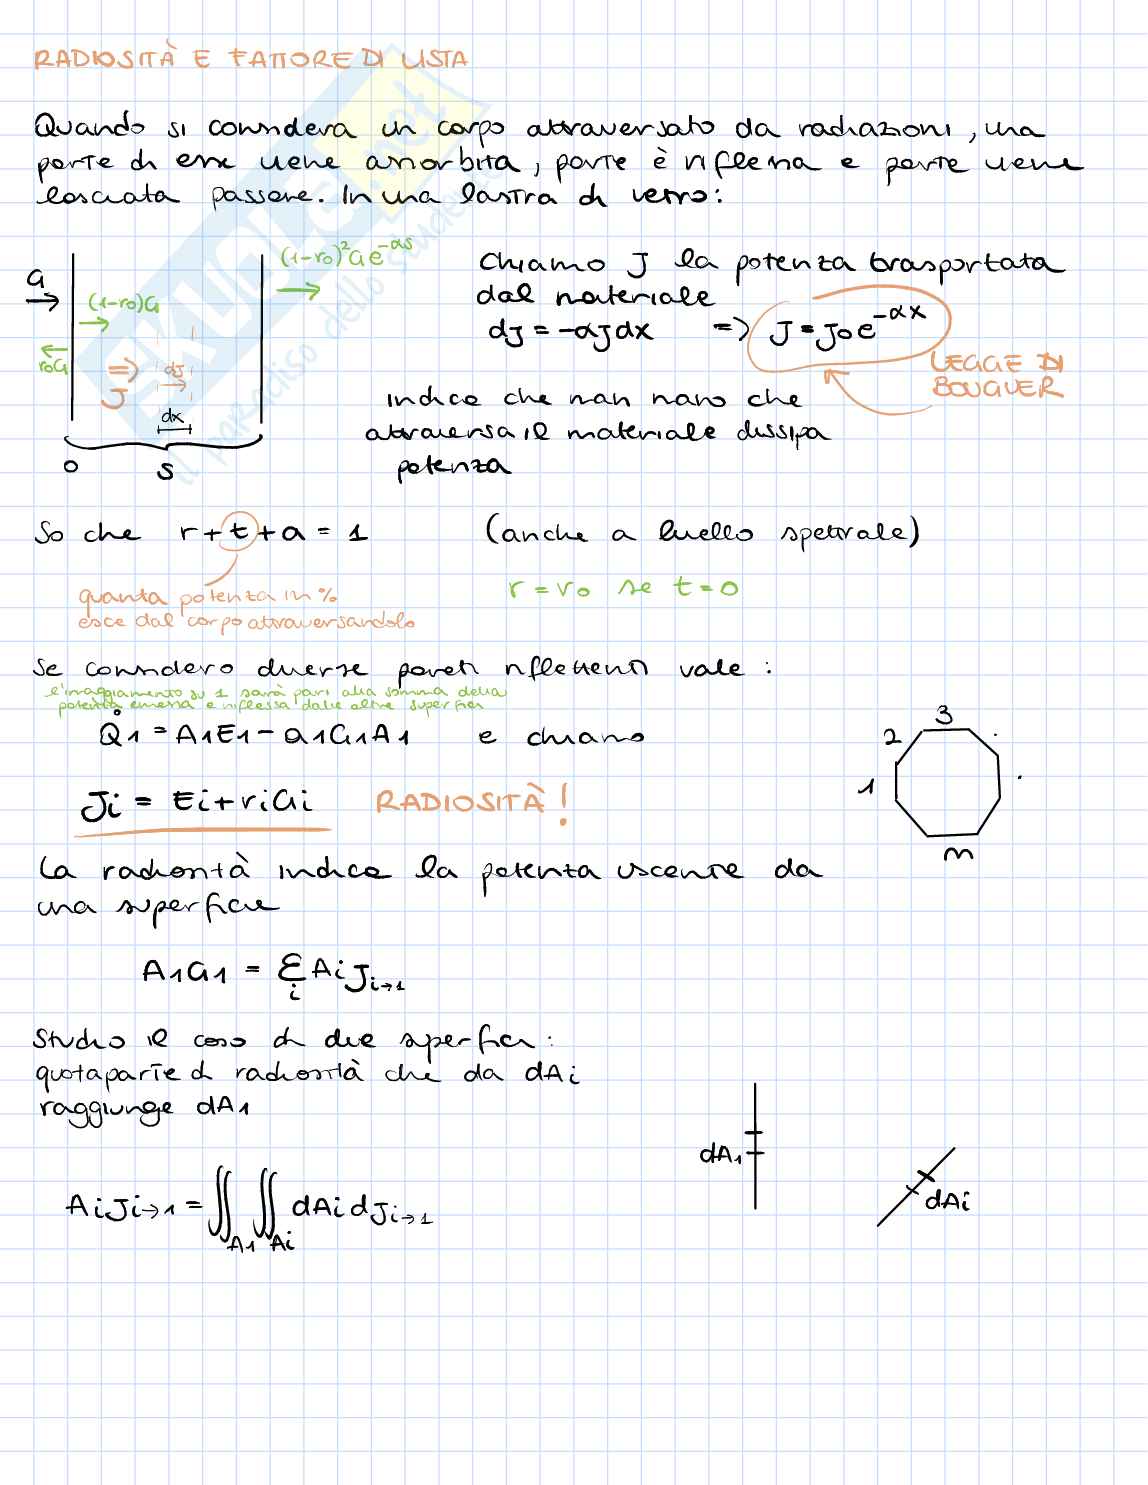 RADIOSITÀ E FATTORE DI VISTA
Quando si considera un corpo attraversato da radiazioni, una
parte di esse viene assorbita, parte è riflessa e parte viene
lasciata passare. In una lastra di vetro:
G
(1-r₀)G
r₀G
(1-r₀)²Ge^-αs
=>
J
dJ
dx
0
s
Chiamo J la potenza trasportata
dal materiale
dJ = -αJdx => J = J₀e^-αx
LEGGE DI
BOUGUER
indica che man mano che
attraversa il materiale dissipa
potenza
So che r+t+a = 1 (anche a livello spettrale)
quanta potenza in %
esce dal corpo attraversandolo
r = r₀ se t = 0
Se considero diverse pareti riflettenti vale:
l'irraggiamento su 1 sarà pari alla somma della
potenza emessa e riflessa dalle altre superfici
Q̇1 = A1E1 - a1G1A1 e chiamo
Ji = Ei + riGi RADIOSITÀ!
1
2
3
m
La radiosità indica la potenza uscente da
una superficie
A1G1 = Σi AiJi→1
Studio il caso di due superfici:
quotaparte di radiosità che da dAi
raggiunge dA1
AiJi→1 = ∬A1 ∬Ai dAi dJi→1
dA1
dAi
SKUOLA.net
il paradiso dello studente